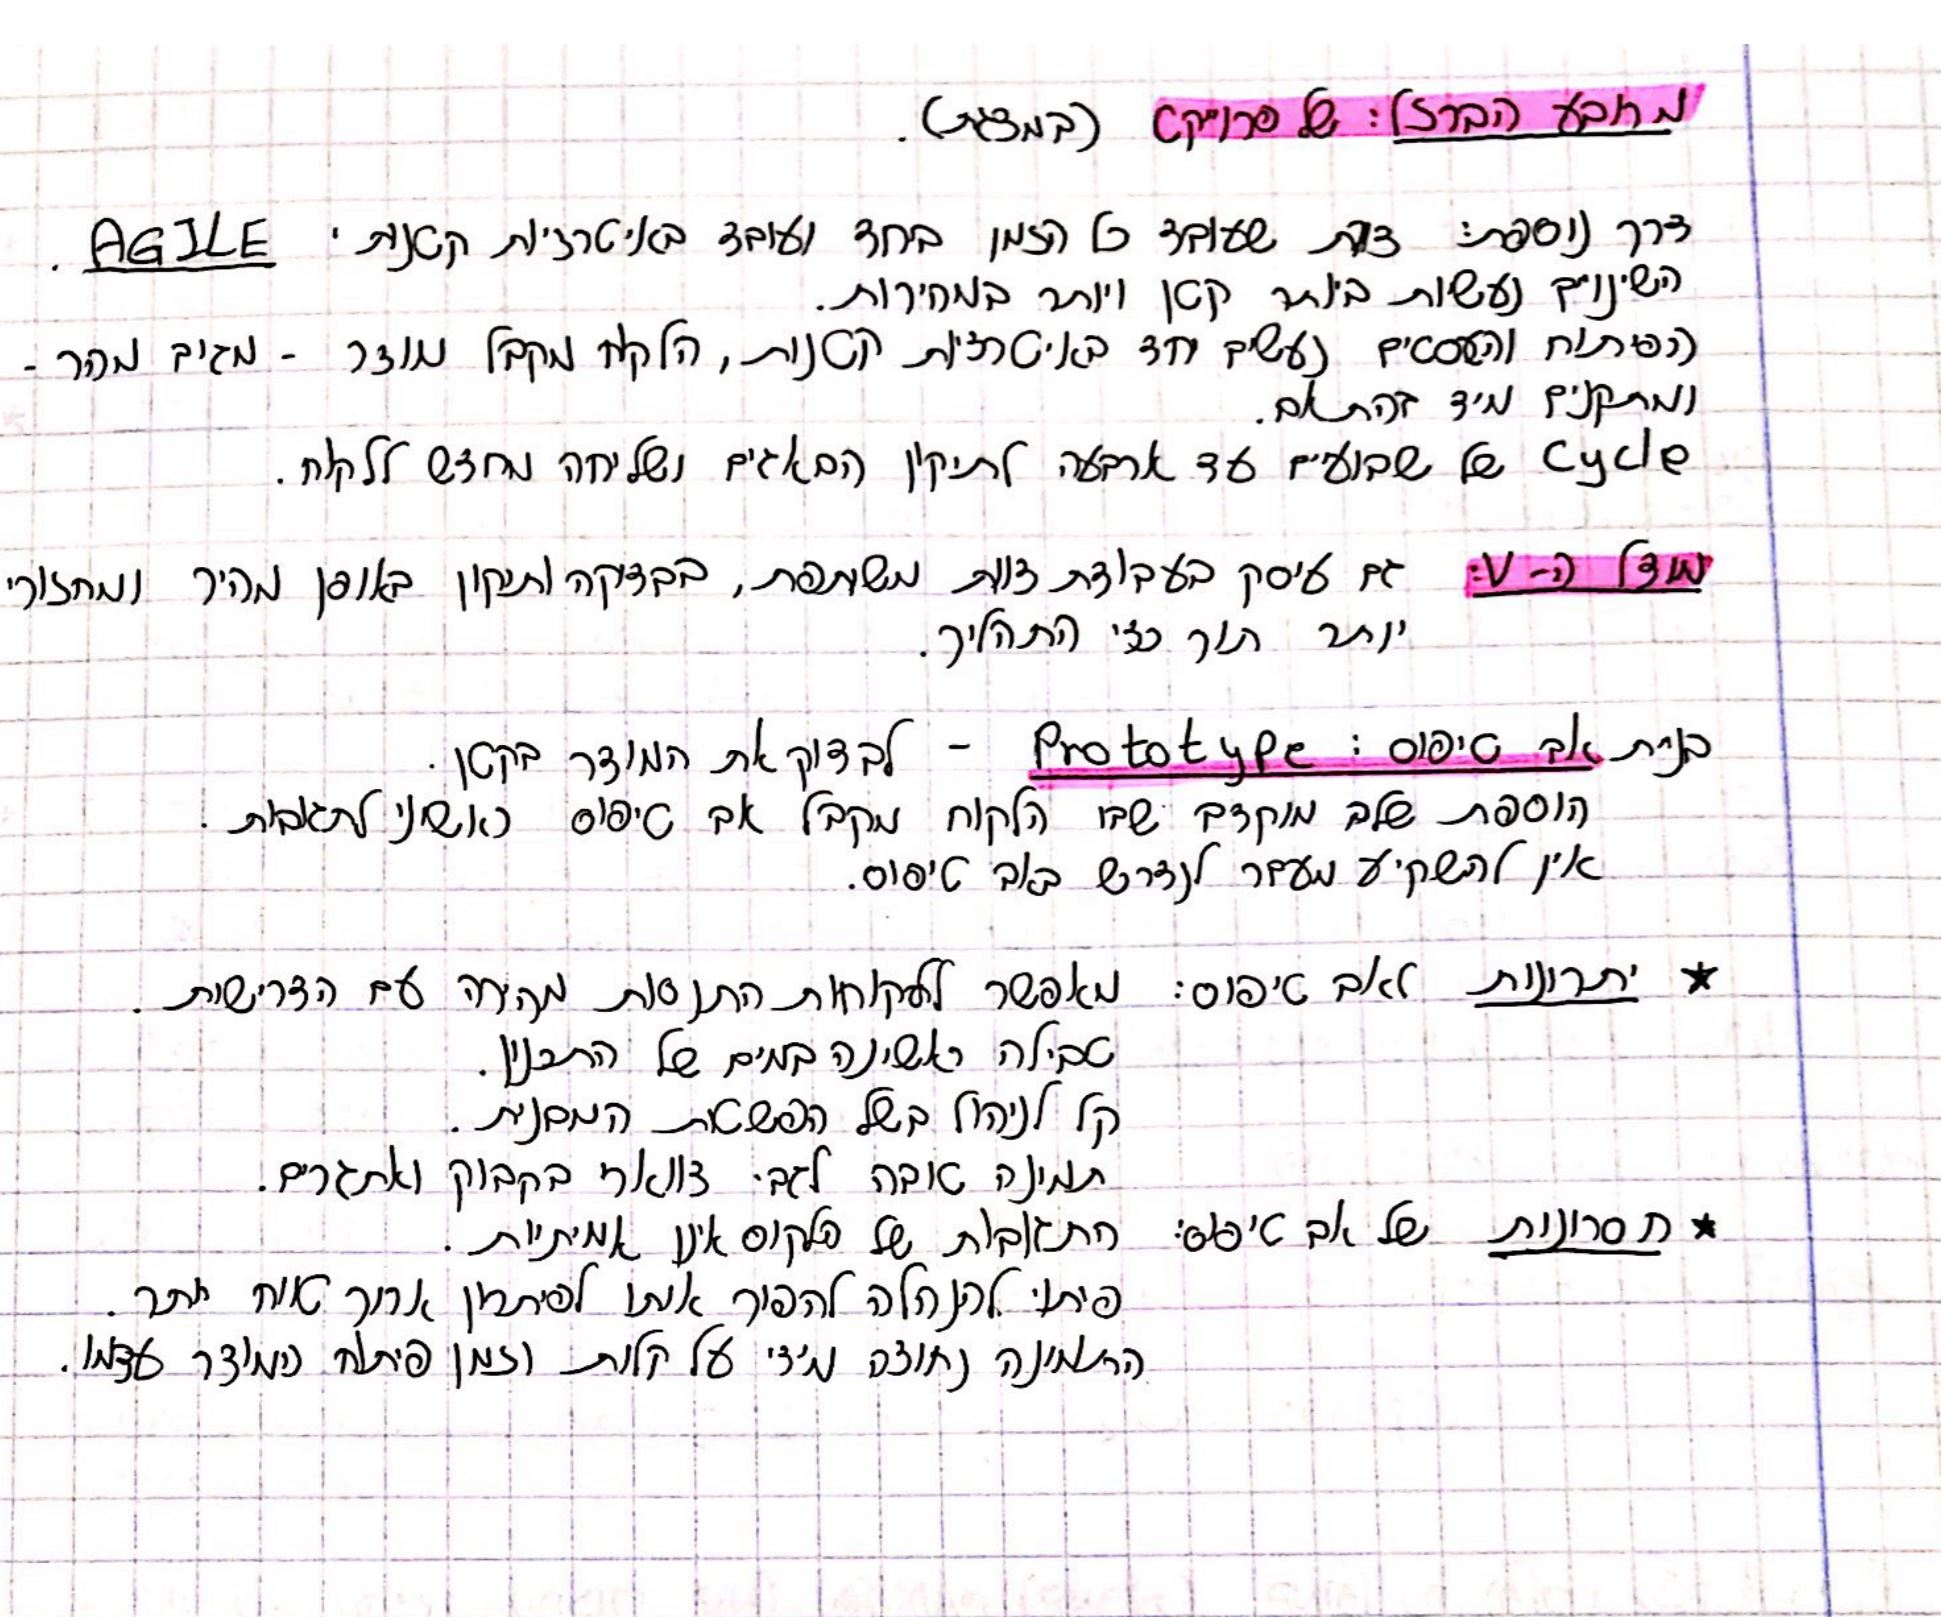 מרובע הברזל: של פרוייקט (במצגת).
דרך נוספת: צוות שעובד כל הזמן ביחד ועובד באיטרציות קטנות י AGILE.
השינויים נעשות ביותר קטן ויותר במהירות.
הפיתוח והטסטים נעשים יחד באיטרציות קטנות, הלקוח מקבל מוצר - מגיב מהר -
ומתקנים מיד בהתאם.
Cycle של שבועיים עד ארבעה לתיקון הבאגים ושליחה מחדש ללקוח.
מודל ה-V: גם עיסק בעבודת צוות משותפת, בבדיקה ותיקון באופן מהיר ומחזורי
יותר תוך כדי התהליך.
בניית אב טיפוס: Prototype - לבדוק את המוצר בקטן.
הוספת שלב מוקדם שבו הלקוח מקבל אב טיפוס ראשוני לתגובות.
אין להשקיע מעבר לנדרש באב טיפוס.
★ יתרונות לאב טיפוס: מאפשר ללקוחות התנסות מהירה עם הדרישות.
טבילה ראשונה במים של התכנון.
קל לניהול בשל הפשטות המבנית.
תמונה טובה לגבי צווארי בקבוק ואתגרים.
★ חסרונות של אב טיפוס: התגובות של הלקוח אינן אמיתיות.
פיתוי להנהלה להפוך אותו לפיתרון ארוך טווח יותר.
התמונה נחוצה מידי על קלות וזמן פיתוח המוצר עצמו.